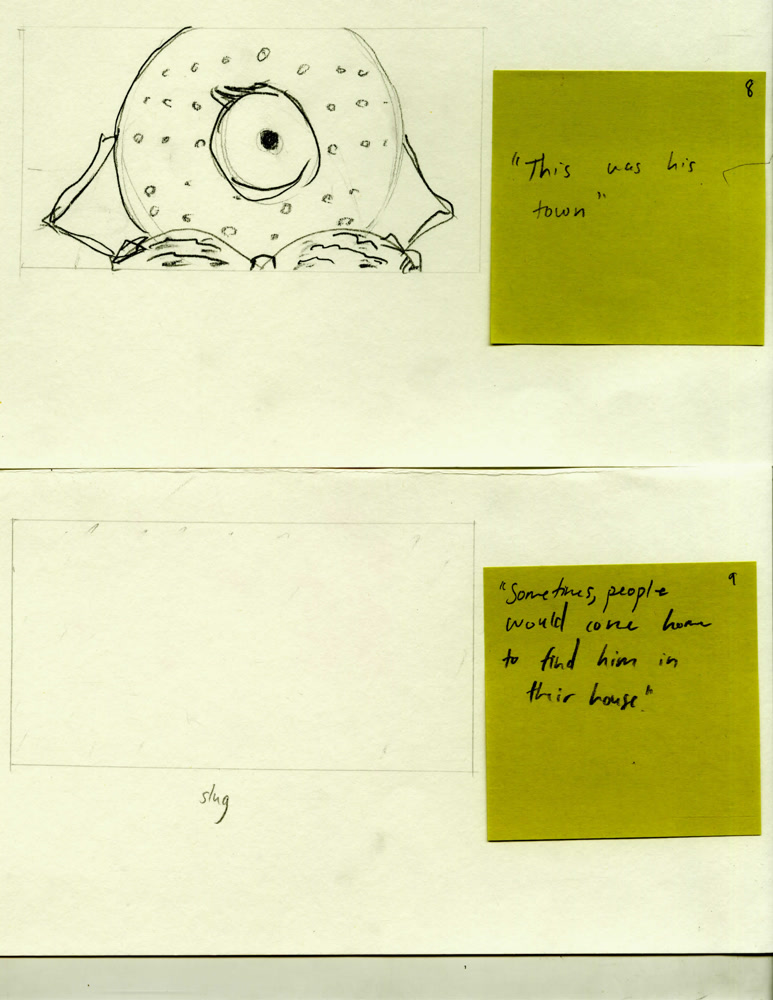 8
"This was his
town"
9
"Sometimes, people
would come home
to find him in
their house."
slug